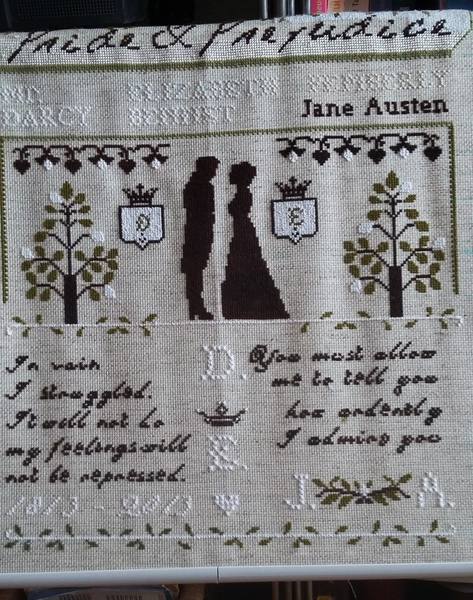 Pride & Prejudice
MR.
DARCY
ELIZABETH
BENNET
PEMBERLY
Jane Austen
D
E
In vain
I struggled.
It will not do
my feelings will
not be repressed.
1813 - 2013
D.
E.
You must allow
me to tell you
how ardently
I admire you
J. A.